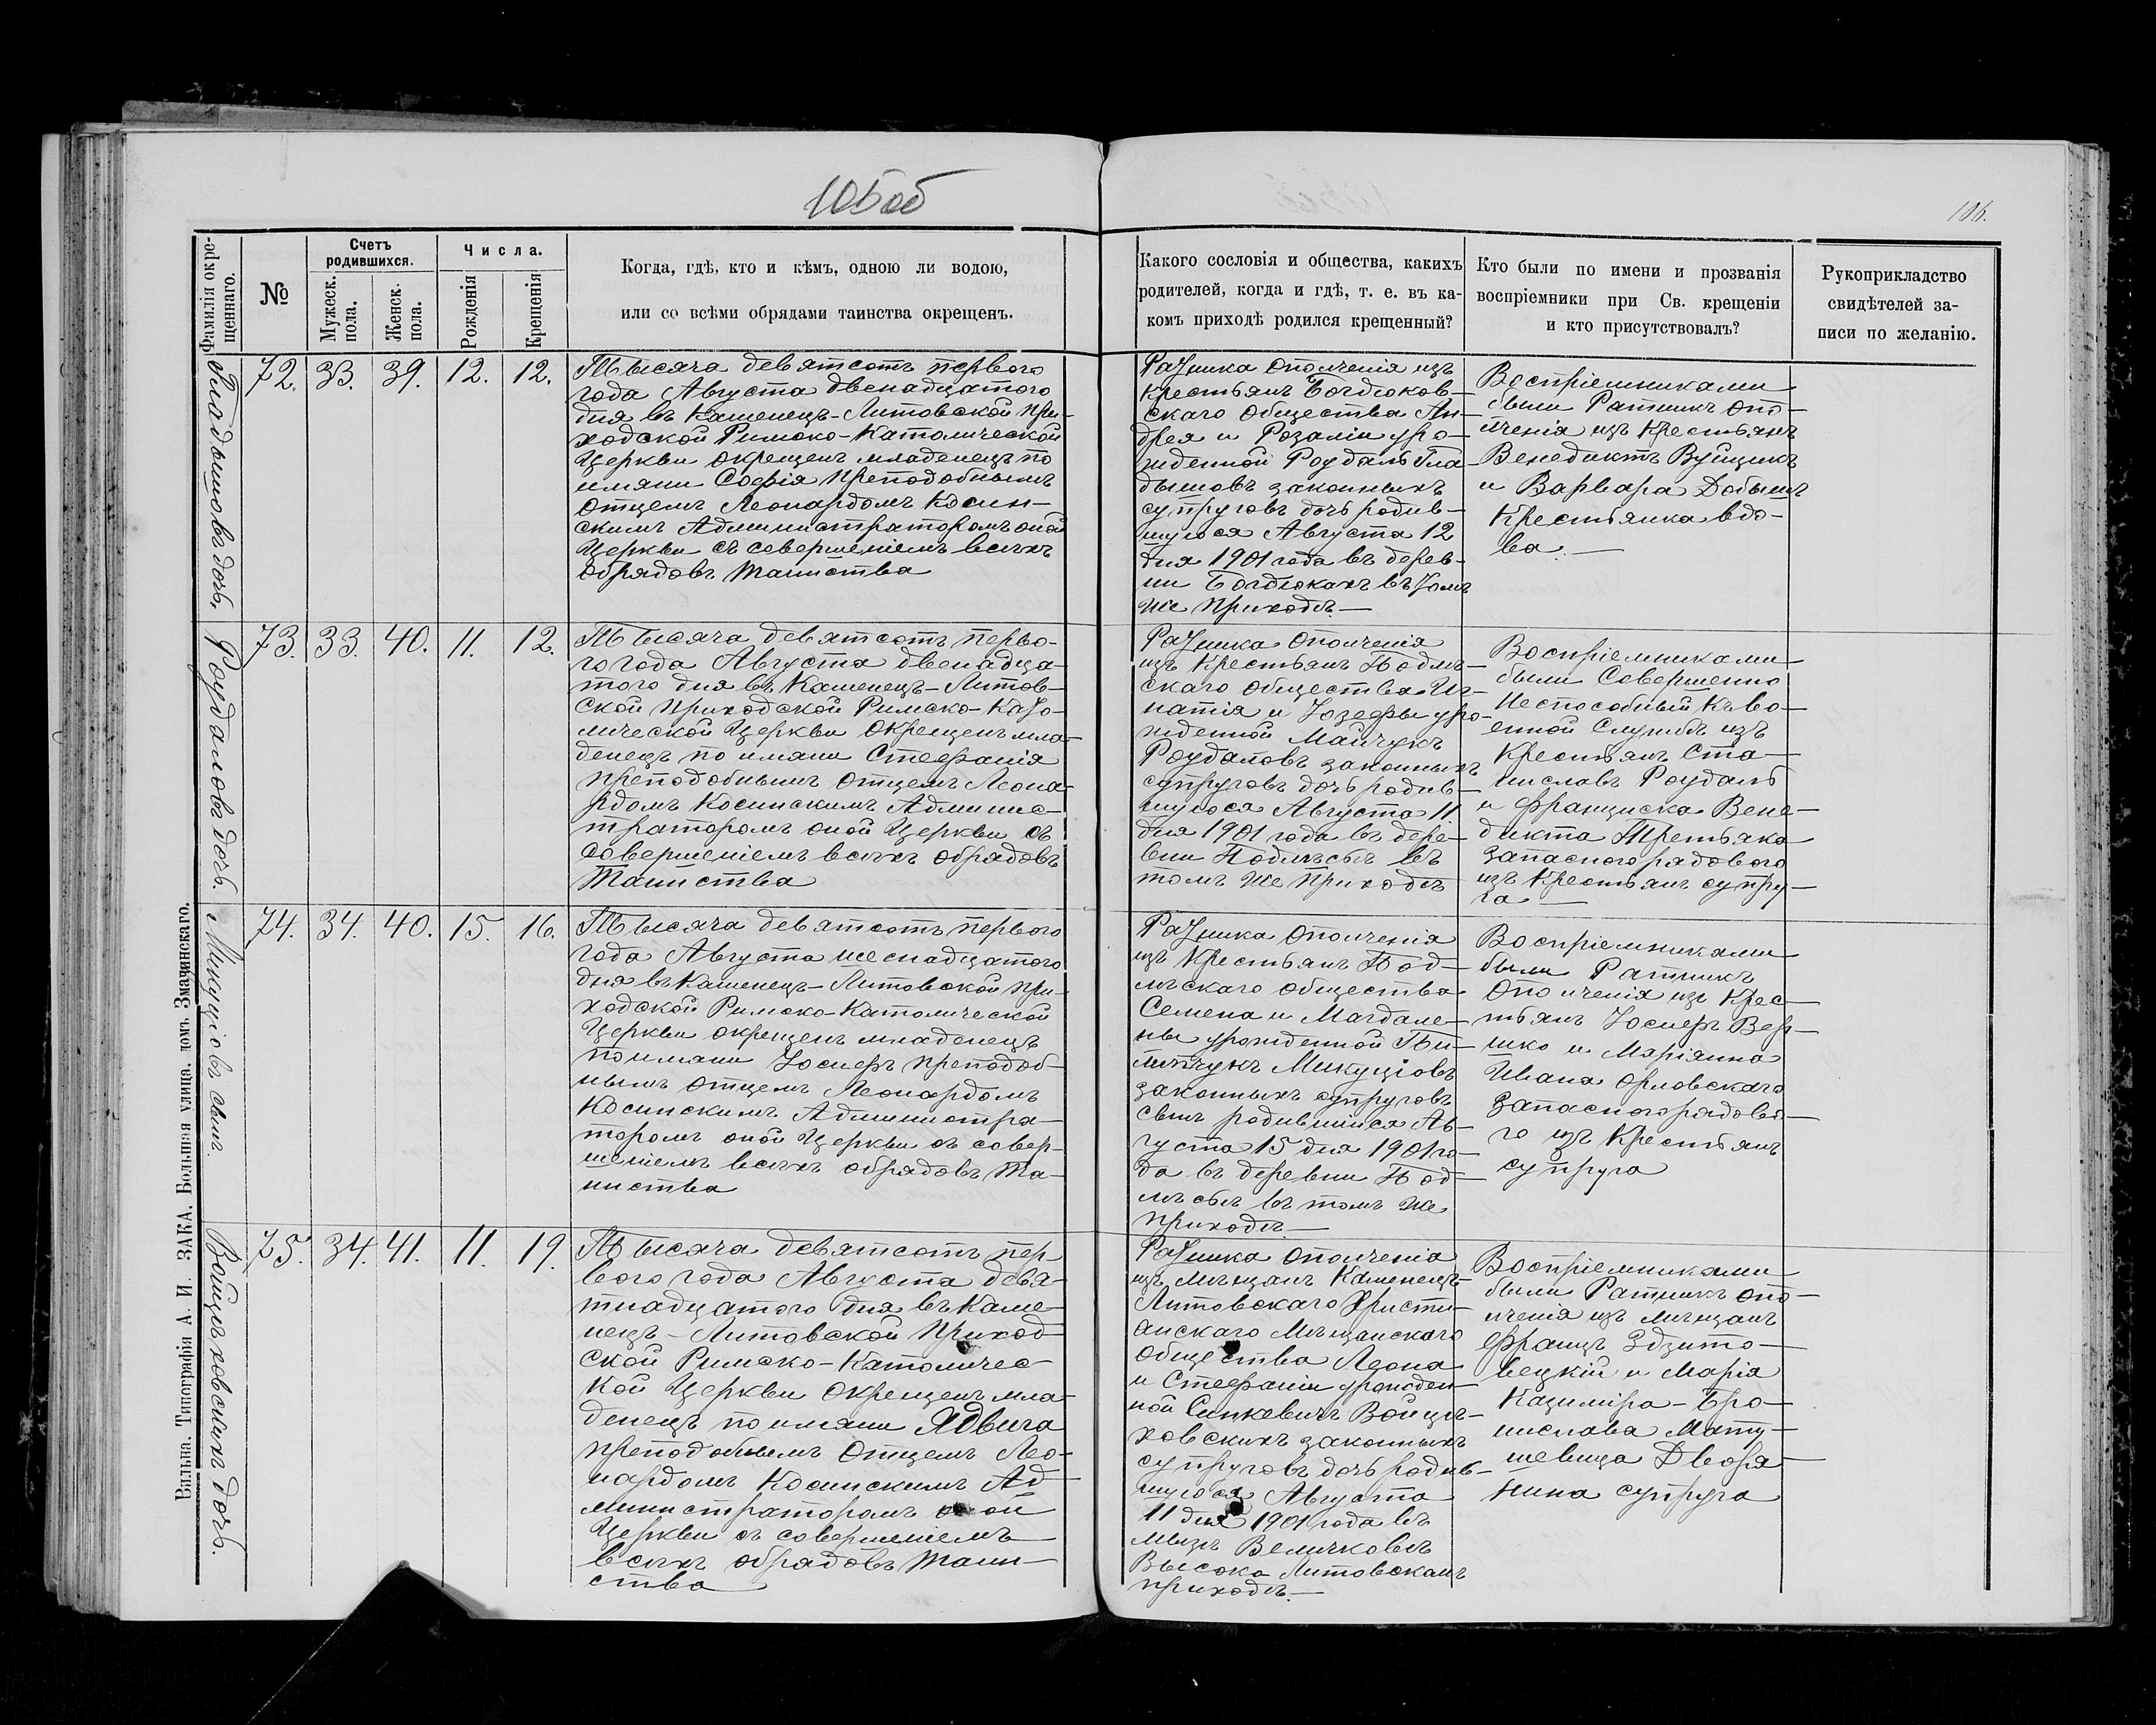 105 об
106.
Фамилія окре-
щеннаго.
№
Счетъ
родившихся.
Мужеск.
пола.
Женск.
пола.
Числа.
Рожденія
Крещенія
Когда, гдѣ, кто и кѣмъ, одною ли водою,
или со всѣми обрядами таинства окрещенъ.
Какого сословія и общества, какихъ
родителей, когда и гдѣ, т. е. въ ка-
комъ приходѣ родился крещенный?
Кто были по имени и прозванія
воспріемники при Св. крещеніи
и кто присутствовалъ?
Рукоприкладство
свидѣтелей за-
писи по желанію.
Гладышовъ дочь.
72. 33. 39. 12. 12.
Тысяча девятсотъ первого
года Августа двенадцатого
дня въ Каменецъ-Литовской при-
ходской Римско-Католической
Церкви окрещенъ младенецъ по
имяни Софія преподобнымъ
отцемъ Леонардомъ Косин-
скимъ Администраторомъ оной
Церкви съ совершеніемъ всѣхъ
обрядовъ таинства
Ратника ополченія изъ
крестьянъ Богдюков-
скаго общества Ан-
дрея и Розаліи уро-
жденной Роудаль Гла-
дышовъ законныхъ
супруговъ дочь родив-
шуюся Августа 12
дня 1901 года въ дерев-
ни Богдюкахъ въ томъ
же приходѣ.
Воспріемниками
были Ратникъ опо-
лченія изъ крестьянъ
Венедиктъ Вуйцикъ
и Варвара Добышъ
крестьянка вдо-
ва.
Роудаловъ дочь.
73. 33. 40. 11. 12.
Тысяча девятсотъ перво-
го года Августа двенадца-
того дня въ Каменецъ-Литов-
ской приходской Римско-Като-
лической Церкви окрещенъ мла-
денецъ по имяни Стефанія
преподобнымъ отцемъ Леона-
рдомъ Косинскимъ Админис-
траторомъ оной Церкви съ
совершеніемъ всѣхъ обрядовъ
таинства
Ратника ополченія
изъ крестьянъ Подлѣ-
скаго общества Иг-
натія и Іозефы уро-
жденной Майчукъ
Роудаловъ законныхъ
супруговъ дочь родив-
шуюся Августа 11
дня 1901 года въ дере-
вни Подлѣсьѣ въ
томъ же приходѣ
Воспріемниками
были Совершенно
неспособный къ во-
енной службѣ изъ
крестьянъ Ста-
ниславъ Роудаль
и Франциска Вене-
дикта Третьяка
запасного рядового
изъ крестьянъ супру-
га
Микуціовъ сынъ.
74. 34. 40. 15. 16.
Тысяча девятсотъ первого
года Августа шеснадцатого
дня въ Каменецъ-Литовской при-
ходской Римско-Католической
Церкви окрещенъ младенецъ
по имяни Іосифъ преподоб-
нымъ отцемъ Леонардомъ
Косинскимъ Администра-
торомъ оной Церкви съ совер-
шеніемъ всѣхъ обрядовъ та-
инства
Ратника ополченія
изъ крестьянъ Под-
лѣскаго общества
Семена и Магдале-
ны урожденной Пи-
липчукъ Микуціовъ
законныхъ супруговъ
сынъ родившійся Ав-
густа 15 дня 1901 го-
да въ деревни Под-
лѣсьѣ въ томъ же
приходѣ.
Воспріемниками
были Ратникъ
ополченія изъ крес-
тьянъ Іосифъ Вер-
шко и Маріянна
Ивана Орловскаго
запасного рядово-
го изъ крестьянъ
супруга
Войцѣховскихъ дочь.
75. 34. 41. 11. 19.
Тысяча девятсотъ пер
вого года Августа девя-
тнадцатого дня въ Каме-
нецъ-Литовской приход-
ской Римско-Католичес-
кой Церкви окрещенъ мла-
денецъ по имяни Ядвига
преподобнымъ отцемъ Лео-
нардомъ Косинскимъ Ад-
министраторомъ оной
Церкви съ совершеніемъ
всѣхъ обрядовъ таин-
ства
Ратника ополченія
изъ мѣщанъ Каменецъ-
Литовскаго Христи-
анскаго Мѣщанскаго
общества Леона
и Стефаніи урожден-
ной Синкевичъ Войцѣ-
ховскихъ законныхъ
супруговъ дочь родив-
шуюся Августа
11 дня 1901 года въ
мызѣ Величковѣ
Высоко Литовскомъ
приходѣ.
Воспріемниками
были Ратникъ опо-
лченія изъ мѣщанъ
Францъ Здзито-
вецкій и Марія
Казимира-Бро-
нислава Мату-
шевица Дворя-
нина супруга
Вильна. Типографія А. И. ЗАКА. Большая улица, домъ Значинскаго.